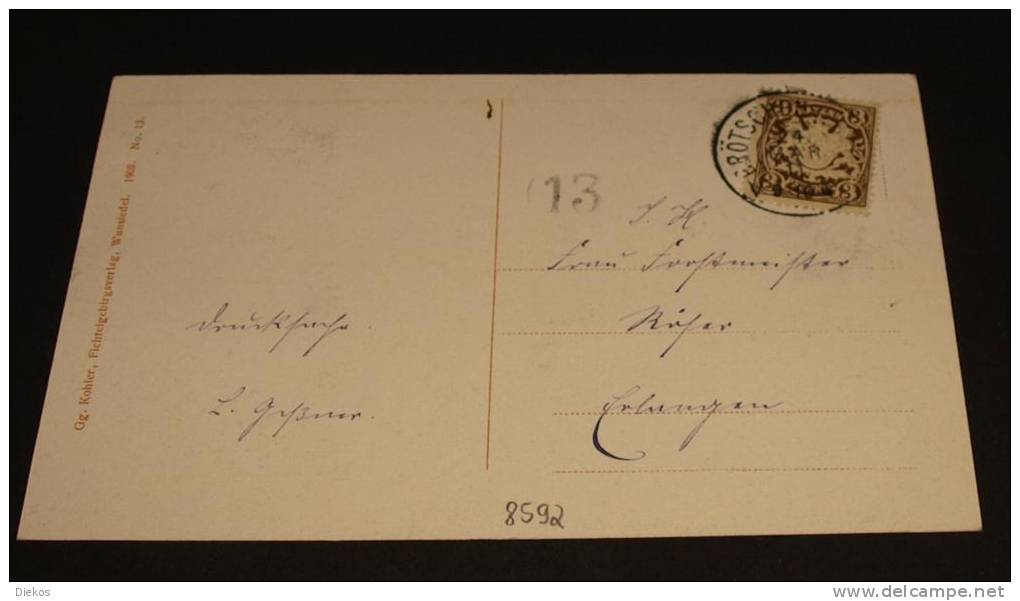 Gg. Kohler, Fichtelgebirgsverlag, Wunsiedel. 1908. No. 13.
Drucksache.
L. Geßner.
13
3
3
I. H.
Frau Forstmeister
Röser
Erlangen
8592
Diekos
www.delcampe.net